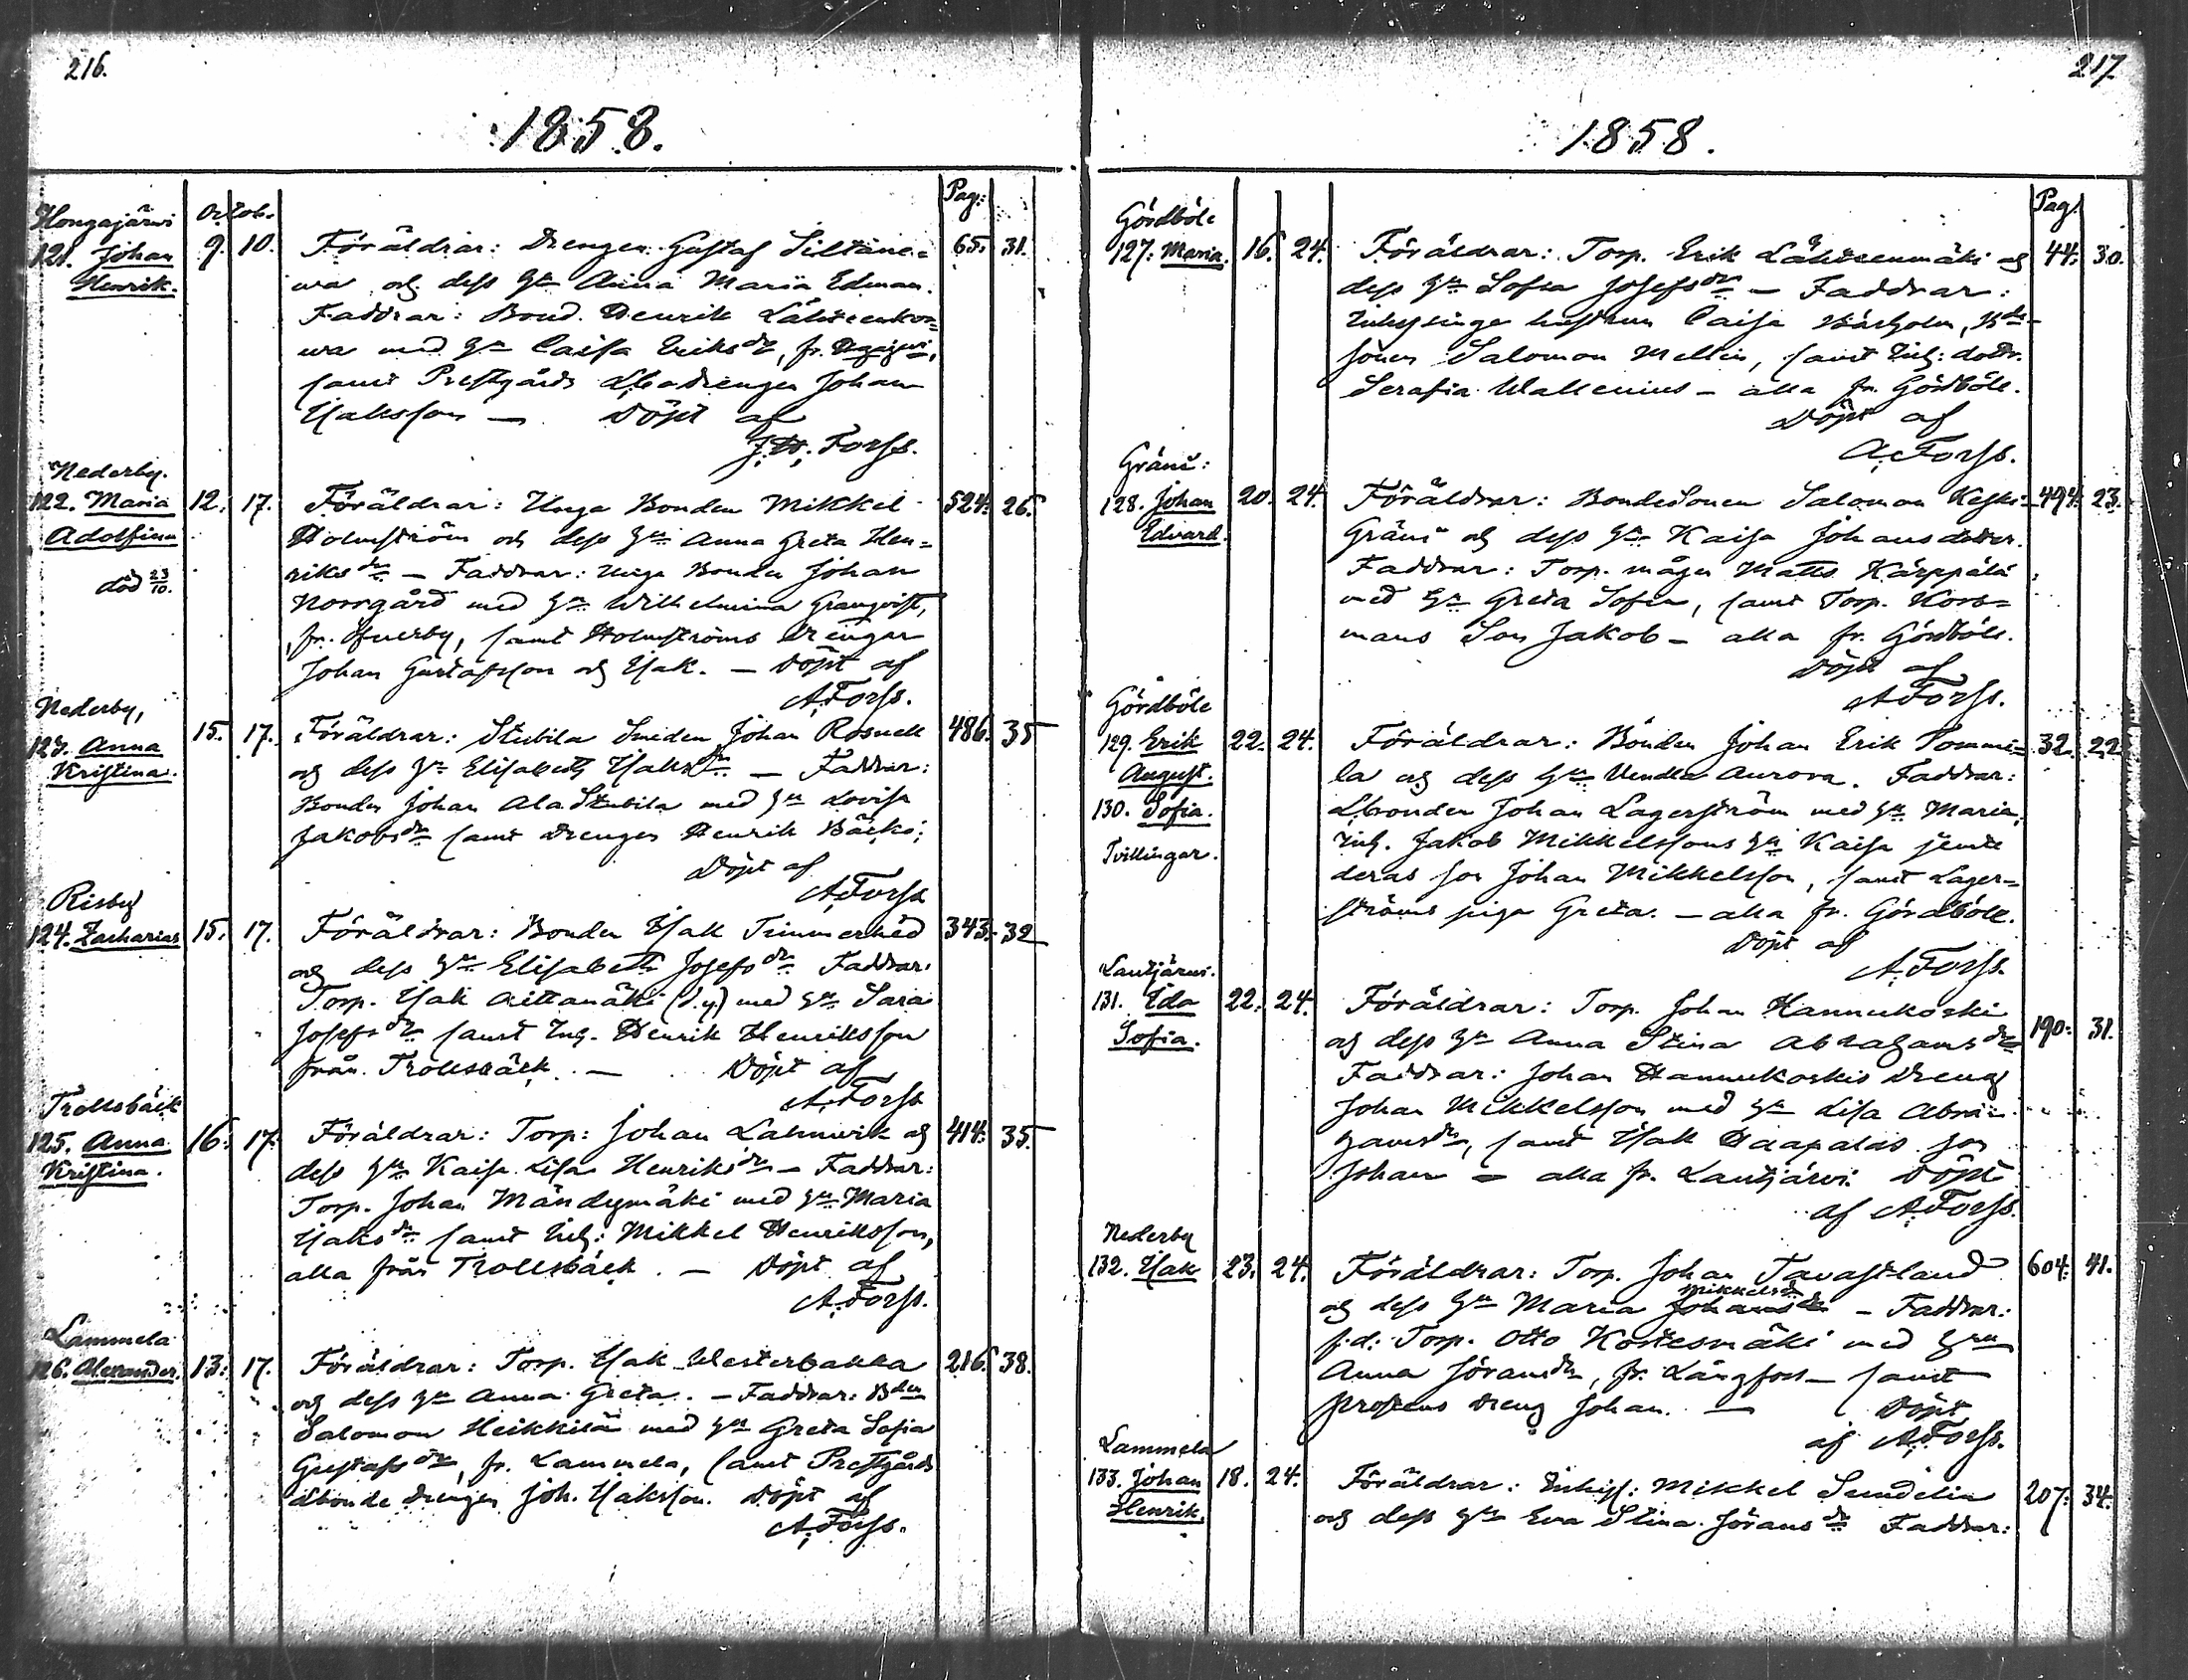 216.
1858.
Octob.
Pag:
Hongajärvi
121. Johan
Henrik.
9. 10.
Föräldrar: Drengen Gustaf Siltane=
wa och dess Hu Anna Maria Edman.
Faddrar: Bond. Henrik Lähteenkor=
wa med Hu Caisa Eriksdr, fr.
samt Prestgårds Lbodrengen Johan
Isaksson — Döpt af
J.H. Forss.
65. 31.
Nederby.
122. Maria
Adolfina
död 23/10.
12. 17.
Föräldrar: Unga Bonden Mikkel
Holmström och dess Hu Anna Greta Hen=
riksdr — Faddrar: unga Bonden Johan
Norrgård med Hu Wilhelmina Granqvist,
fr. Öfverby, samt Holmströms drengar
Johan Gustafsson och Isak. — Döpt af
A. Forss.
524. 26.
Nederby,
123. Anna
Kristina.
15. 17.
Föräldrar: Stubila Smeden Johan Rosnell
och dess Hu Elisabeth Isaksdr — Faddrar:
Bonden Johan Ala Stubila med Hu Lovisa
Jakobsdr samt drengen Henrik Bäck;
Döpt af
A. Forss
486. 35
Risby
124. Zacharias
15. 17.
Föräldrar: Bonden Isak Timmerhed
och dess Hu Elisabeth Josefsdr Faddrar:
Torp. Isak Aittamäki (d.y) med Hu Sara
Josefsdr samt Inh. Henrik Henriksson
från Trollsbäck. — Döpt af
A. Forss
343. 32
Trollsbäck
125. Anna
Kristina.
16. 17.
Föräldrar: Torp: Johan Lahnwik och
dess Hu Kaisa Lisa Henriksdr — Faddrar:
Torp. Johan Mändymäki med Hu Maria
Isaksdr samt Inh: Mikkel Henriksson,
alla från Trollsbäck. — Döpt af
A. Forss.
414. 35.
Lammela
126. Alexander.
13. 17.
Föräldrar: Torp. Isak Westerbakka
och dess Hu Anna Greta. — Faddrar: Bden
Salomon Heikkilä med Hu Greta Sofia
Gustafsdr, fr. Lammela, samt Prestgårds
Lbonde drengen Joh. Isaksson. Döpt af
A. Forss.
216. 38.
217.
1858.
Pag.
Gördböle
127. Maria.
16. 24.
Föräldrar: Torp. Erik Lähteenmäki och
dess Hu Sofia Josefsdr — Faddrar:
Inhysinge hustrun Caisa Båsholm, Bde-
sonen Salomon Mellin, samt Inh: dottr.
Serafia Wallenius — alla fr. Gördböle.
Döpt af
A. Forss.
44. 30.
Gräni:
128. Johan
Edvard.
20. 24.
Föräldrar: Bondesonen Salomon Keski=
Gräni och dess Hu Kaisa Johansdotter.
Faddrar: Torp. mågen Matts Kärppälä
med Hu Greta Sofia, samt Torp. Kors=
mans Son Jakob — alla fr. Gördböle.
Döpt af
A. Forss.
494. 23.
Gördböle
129. Erik
August.
130. Sofia.
Tvillingar.
22. 24.
Föräldrar: Bonden Johan Erik Tommi=
la och dess Hu Vendla Aurora. Faddrar:
Lbonden Johan Lagerström med Hu Maria,
Inh. Jakob Mikkelssons Hu Kaisa jemte
deras son Johan Mikkelsson, samt Lager=
ströms piga Greta. — alla fr. Gördböle.
Döpt af
A. Forss.
32. 22
Lautjärvi.
131. Ida
Sofia.
22. 24.
Föräldrar: Torp. Johan Hannukoski
och dess Hu Anna Stina Abrahamsdr
Faddrar: Johan Hannukoskis dreng
Johan Mikkelsson med Hu Lisa Abra=
hamsdr, samt Isak Haapalas son
Johan — alla fr. Lautjärvi Döpt
af A. Forss.
190. 31.
Nederby
132. Isak
23. 24.
Föräldrar: Torp. Johan Tavastland
Mikkelsdr
och dess Hu Maria Johansdr — Faddrar:
f.d. Torp. Otto Kostesmäki med Hru
Anna Jöransdr, fr. Långfors — samt
Prostens dreng Johan. — Döpt
af A. Forss.
604. 41.
Lammela
133. Johan
Henrik.
18. 24.
Föräldrar: Inhys: Mikkel Sundelin
och dess Hu Eva Stina Jöransdr Faddrar:
207. 34.